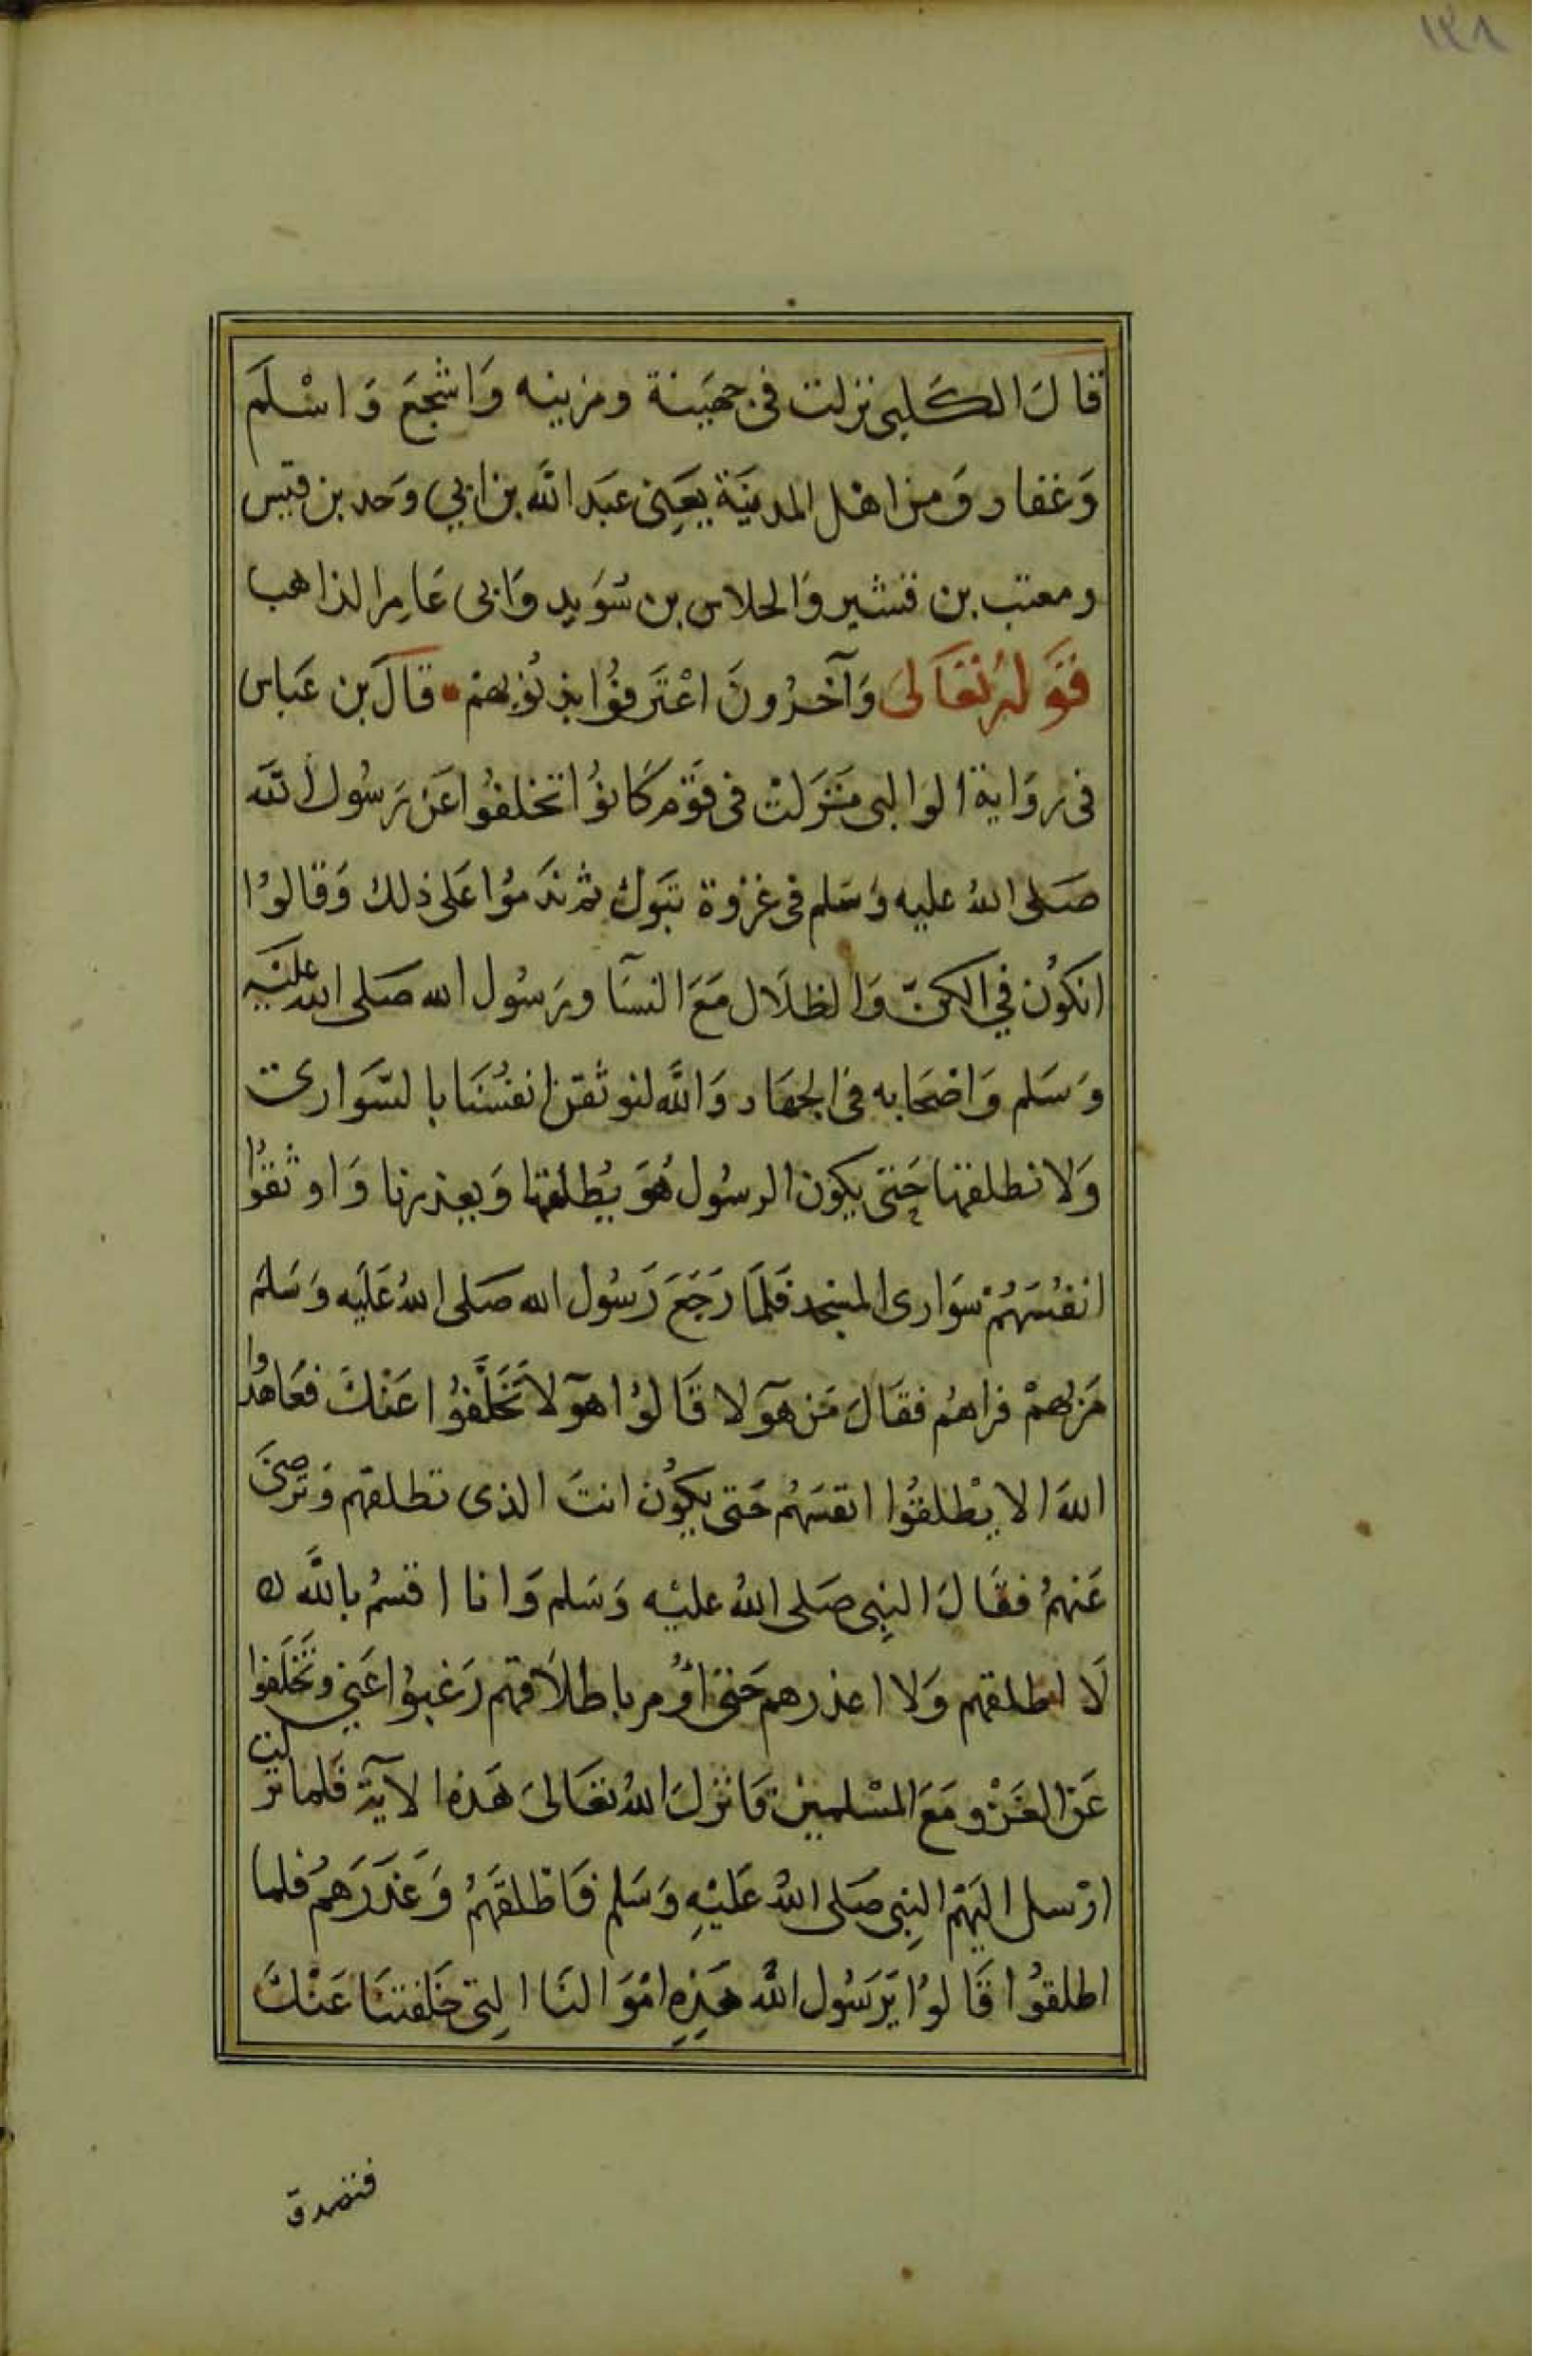 ١٣٨
قَالَ الكَلبى نزلت فى جهَينة ومزينه وَاشجَع وَاسْلَم
وَغفار وَمن اهْل المدينَة يَعِنى عبَد الله بن ابي وَحد بن قيس
ومعتب بن قشير وَالحلاس بن سُوَيد وَابى عَامِر الذاهب
قَولهُ تعَالىَ وَآخرُونَ اعْتَرفوُا بذنوُبهمْ قالَ بن عَباس
فى روَاية الوَالبى نَزَلتْ فى قوَم كَانوُا تخلفوُا عَن رَسُول الله
صَلى اللهُ عليه وَسَلم فى غزوة تبَوك ثم ندَموُا عَلى ذلك وَقالوُا
انكوُن في الكنّ وَالظلاَل مَعَ النسَآ ورَسُول الله صَلى الله عليَه
وَسَلم وَاصْحَابه فى الجهَاد وَاللَّه لنوثقن انفسُنَا بالسَّوَارى
وَلا نطلقها حَتى يكون الرسُول هُوَ يُطلقها وَيعذرنا وَاوثقوُا
انفسُهُمْ سوَارى المسْجد فَلمَا رَجَعَ رَسُول الله صَلى اللهُ عَلَيه وَسَلم
مَر بهمْ فراهُم فقَالَ مَن هَوٓلا قَالوُا هوٓلا تَخَلَّفوُا عَنْكَ فعَاهدُوا
اللهَ الا يطْلقوُا انفسَهُم حَتى يكوُن انتَ الذى تطلقهم وَترضىَ
عَنهمُ فقَالَ النِبى صَلى اللهُ عليْه وَسَلم وَانا اقسمُ باللَّه
لَا اطلقهم وَلا اعذرهم حَتى اوُمر باطلاَقهم رَغبوُا عَنِي وتَخَلَفوا
عَن الغَزْو مَعَ المسْلمِين فَانزلَ اللهُ تعَالىَ هَذه الآية فَلما نزلت
ارْسل اليَهْم النِبى صَلى اللهُ عَليْهِ وَسَلم فَاطلقَهُمْ وَعَذَرَهمُ فلما
اطلقوُا قَالوُا يَرَسُول اللَّه هَذِهِ امْوَالنَا التِى خَلفتنَا عَنْكَ
فتصدق